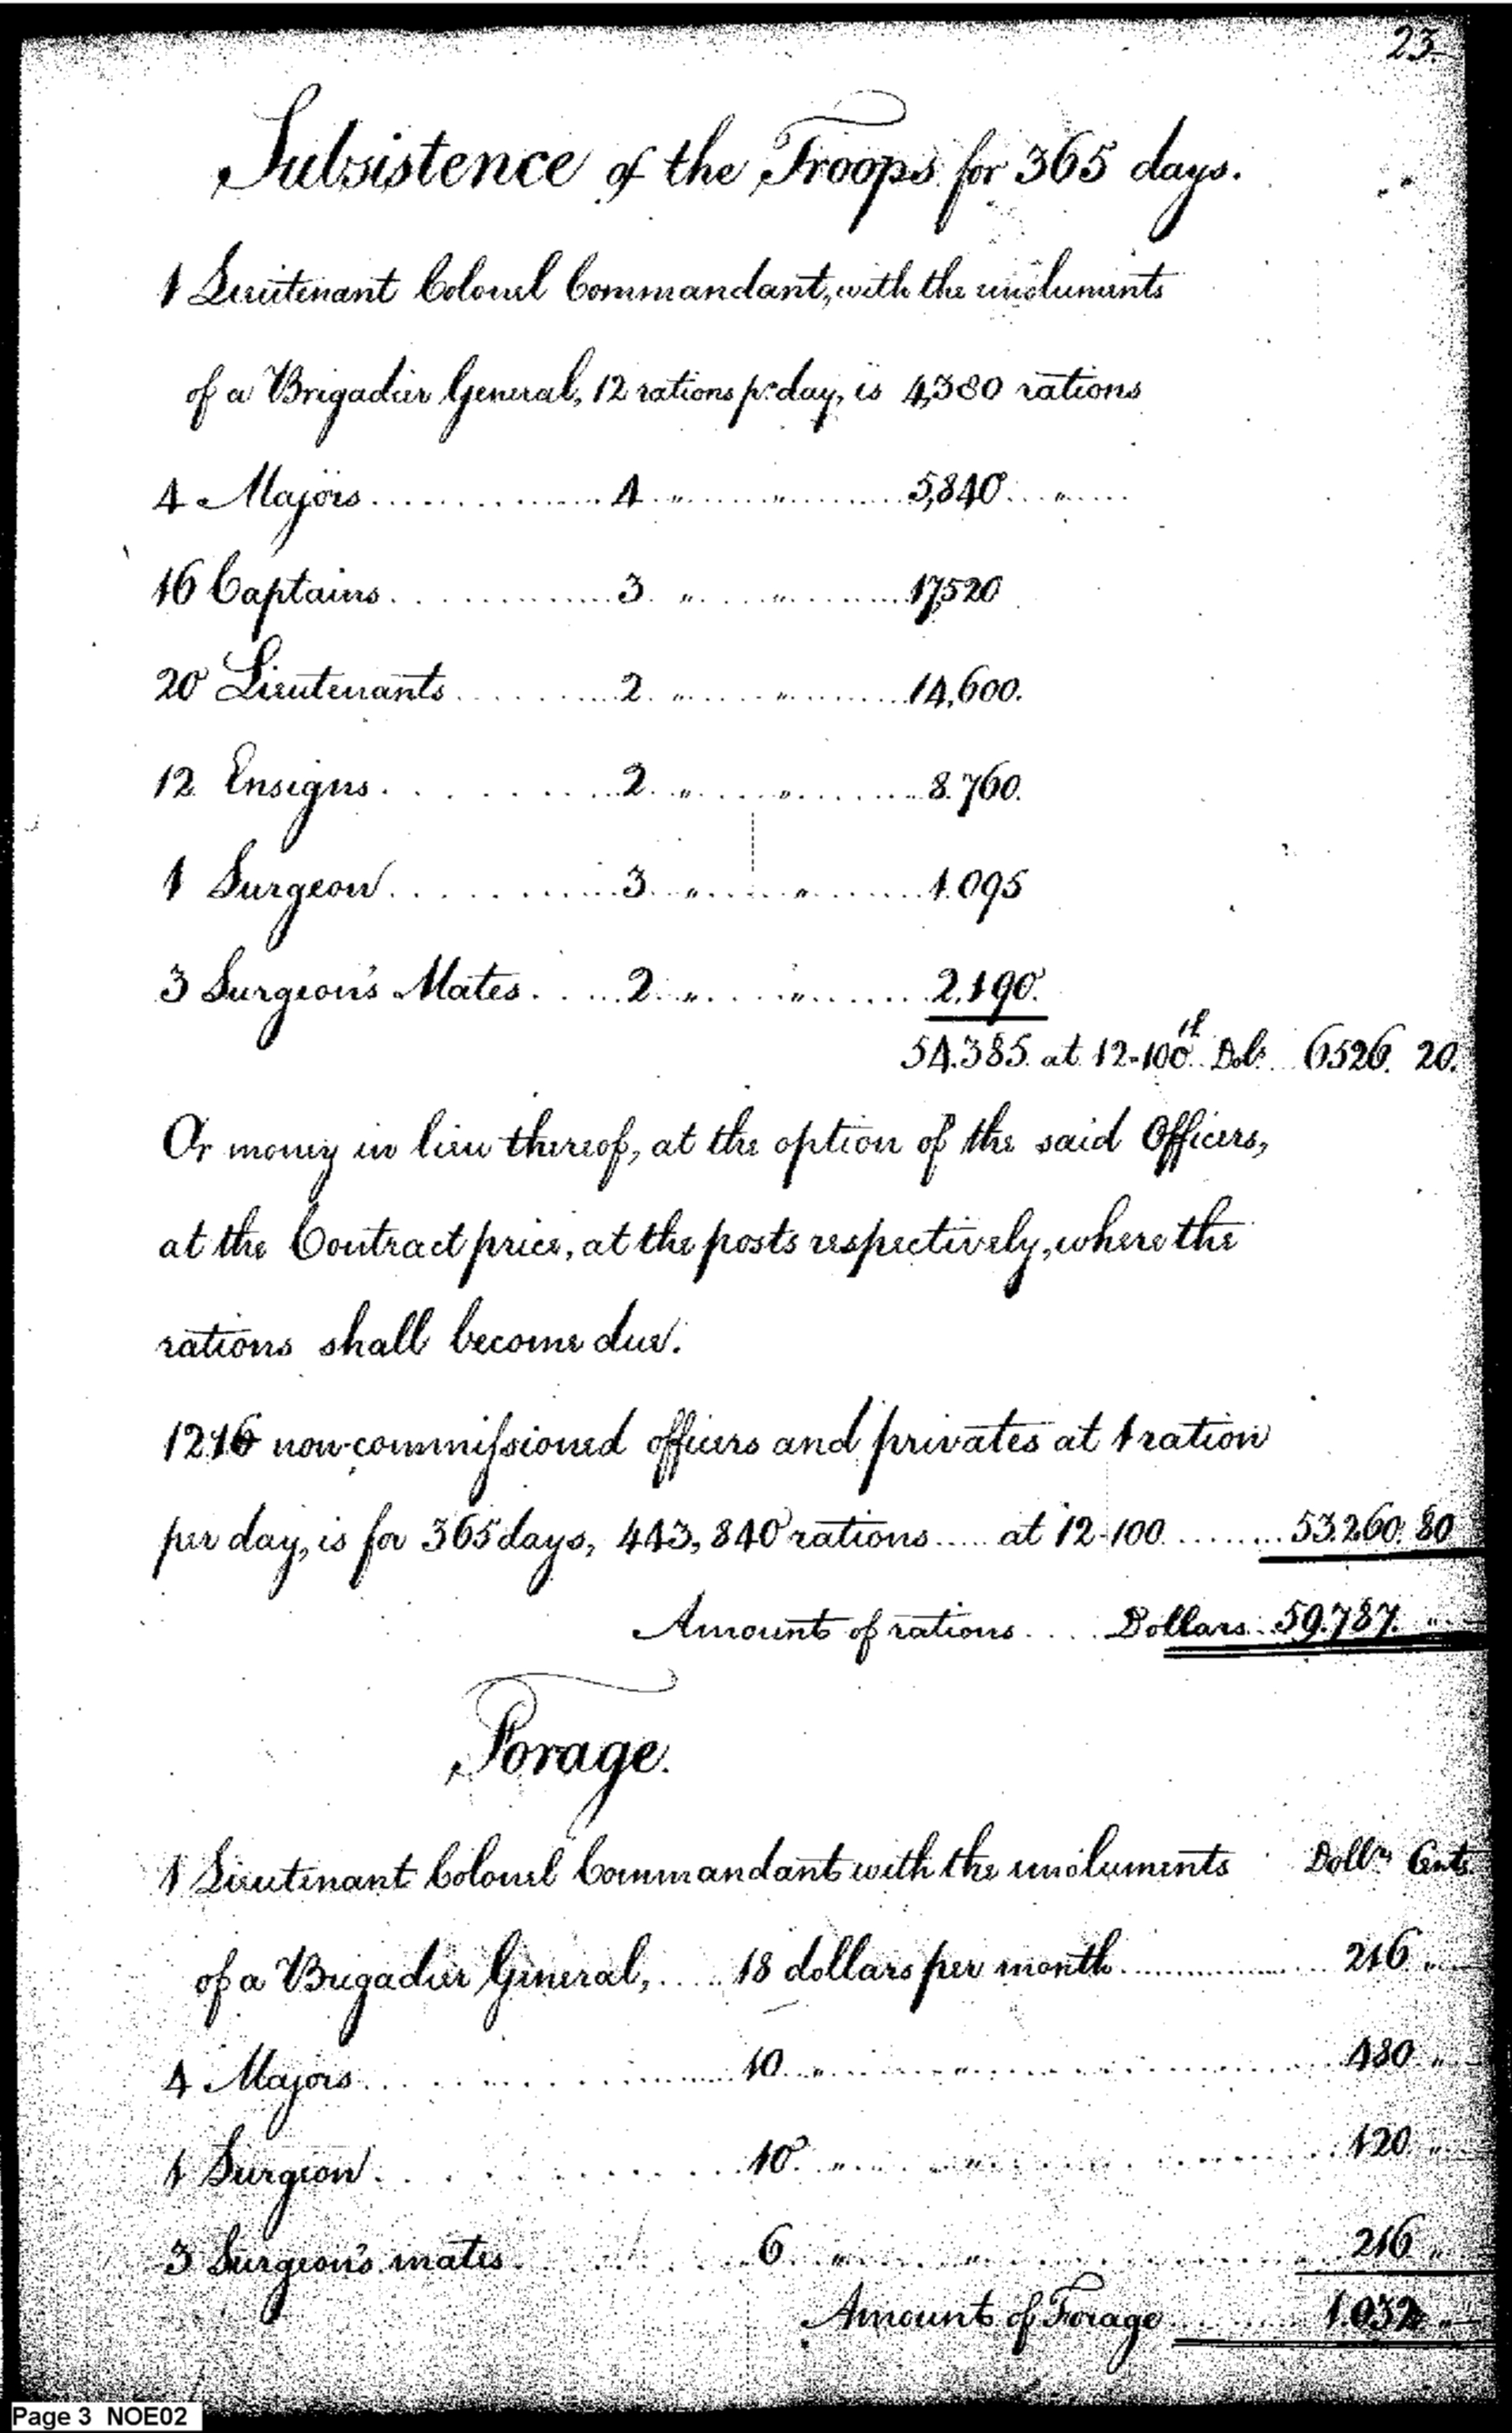 23.
Subsistence of the Troops for 365 days.
1 Lieutenant Colonel Commandant, with the emoluments
of a Brigadier General, 12 rations pr. day, is 4,380 rations
4 Majors .......... 4 " ..... " ..... 5,840 .. " ....
16 Captains .......... 3. " ..... " ..... 17,520
20 Lieutenants .......... 2. " ..... " ..... 14,600.
12 Ensigns .......... 2. " ..... " ..... 8.760.
1 Surgeon .......... 3. " ..... " ..... 1.095
3 Surgeon's Mates ..... 2. " ..... " ..... 2.190.
54.385. at 12-100th. Dols. 6526. 20.
Or money in lieu thereof, at the option of the said Officers,
at the Contract price, at the posts respectively, where the
rations shall become due.
1216 non-commissioned officers and privates at 1 ration
per day, is for 365 days, 443,840 rations ..... at 12-100 ........ 53.260. 80
Amount of rations .... Dollars .. 59.787. "
Forage.
1 Lieutenant Colonel Commandant with the emoluments Dollrs Cents.
of a Brigadier General, ..... 18 dollars per month .......... 216 "
4 Majors .......... 10. " .......... 480 "
1 Surgeon .......... 10. " .......... 120 "
3 Surgeon's mates .......... 6 " .......... 216 "
Amount of Forage .......... 1.032 "
Page 3 NOE02